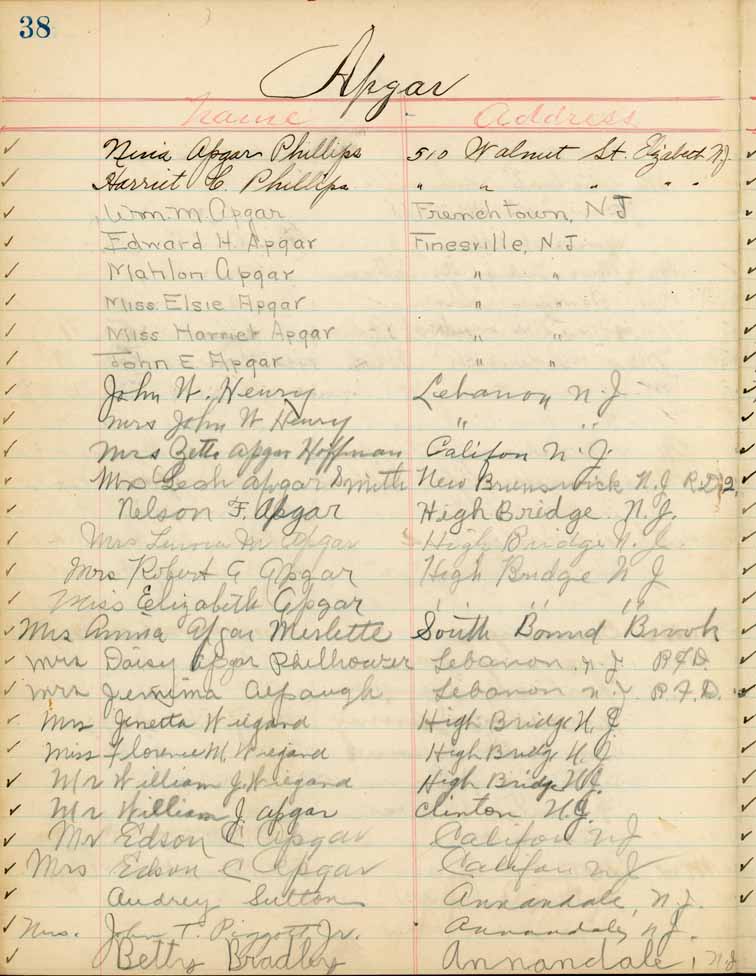 38
Apgar
Name Address
✓ Nina Apgar Phillips 510 Walnut St. Elizabeth N.J.
✓ Harriet C. Phillips " " " " "
✓ Wm. M. Apgar Frenchtown, N J
✓ Edward H. Apgar Finesville, N J
✓ Mahlon Apgar " "
✓ Miss. Elsie Apgar " "
✓ Miss Harriet Apgar " "
✓ John E. Apgar " "
✓ John W. Henry Lebanon N. J.
✓ Mrs John W Henry " "
✓ Mrs Betts Apgar Hoffman Califon N. J.
✓ Mrs Leah Apgar Smith New Brunswick N.J R.D. 2.
✓ Nelson F. Apgar High Bridge. N. J.
✓ Mrs M Apgar High Bridge N. J.
✓ Mrs Robert A Apgar High Bridge N J
✓ Miss Elizabeth Apgar " " "
✓ Mrs Anna Apgar Merlette South Bound Brook
✓ Mrs Daisy Apgar Philhower Lebanon. N. J. R F D.
✓ Mrs Jemima Alpaugh Lebanon N. J. R. F. D.
✓ Mrs Jenetta Wiegand High Bridge N. J
✓ Miss Florence M. Wiegand High Bridge N. J
✓ Mr William J. Wiegand High Bridge N.J.
✓ Mr William J. Apgar Clinton, N.J.
✓ Mr Edson C Apgar Califon NJ
✓ Mrs Edson C Apgar Califon NJ
✓ Audrey Sutton Annandale, N. J.
✓ Mrs. John T. Piggott Jr. Annandale, N. J.
✓ Betty Bradley Annandale, N J